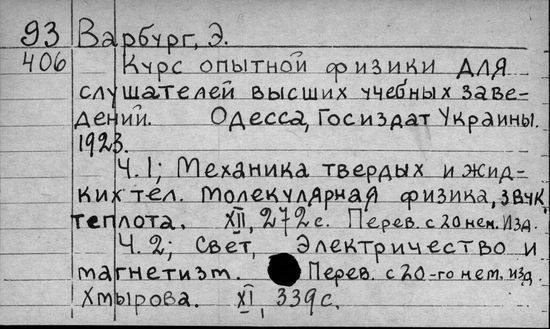 93 Варбург, Э.
406 Курс опытной физики для
слушателей высших учебных заве-
дений. Одесса, Госиздат Украины.
1923.
Ч.1; Механика твердых и жид-
ких тел. Молекулярная физика, звук
теплота. XII, 272с. Перев. с 20нем. Изд.
Ч.2; Свет, Электричество и
магнетизм. Перев. с 20-го нем. изд.
Хмырова. XI, 339с.